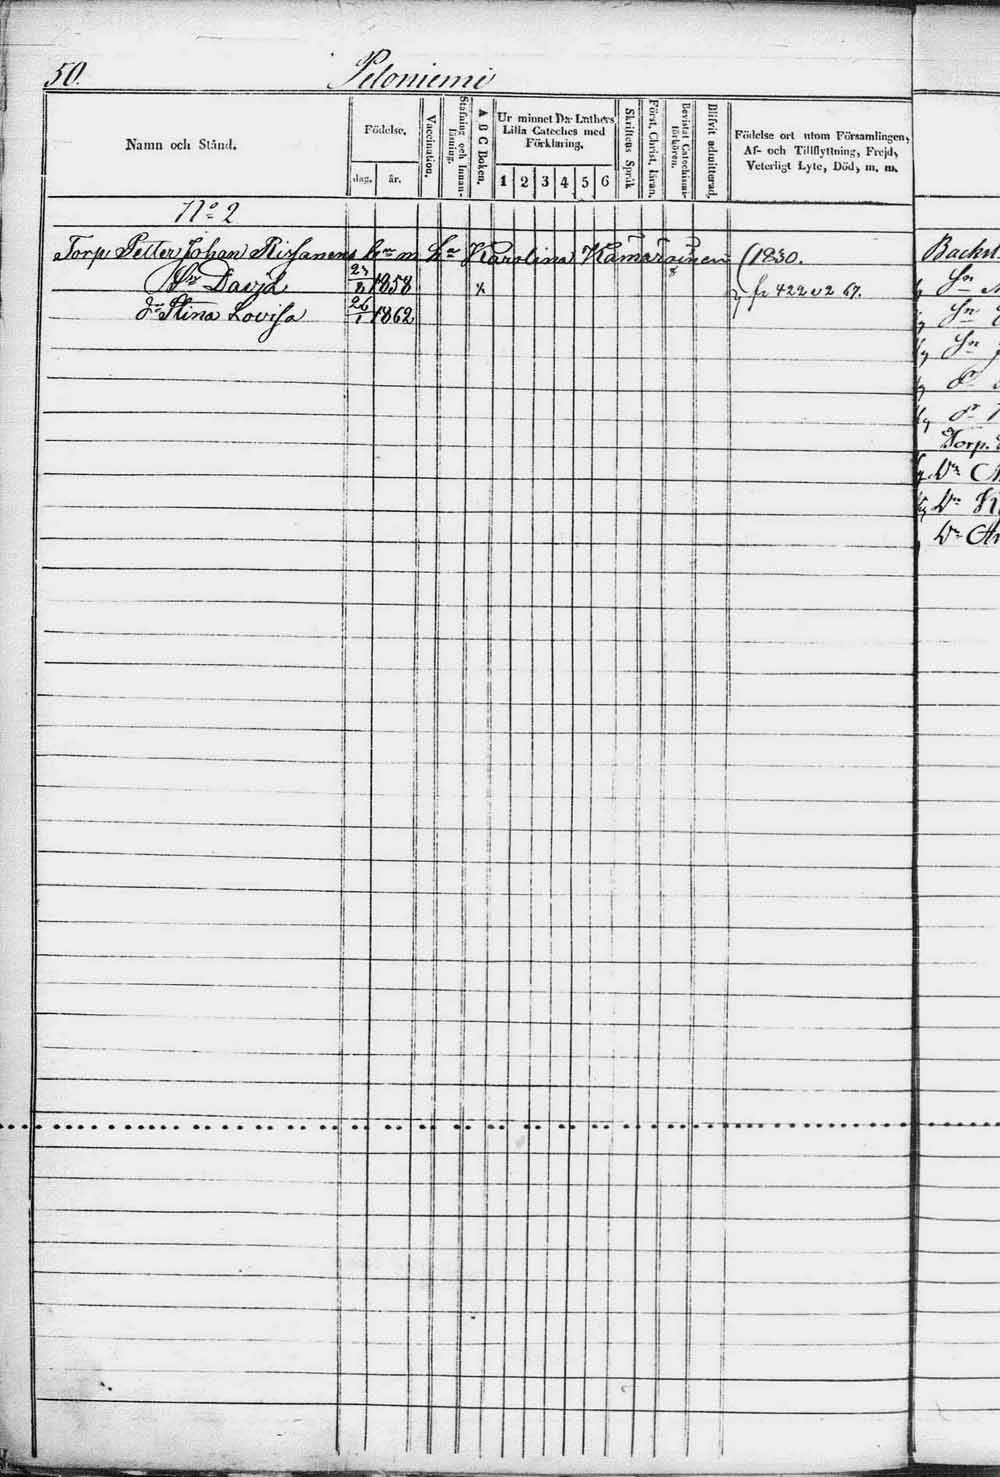 50. Peloniemi
Namn och Stånd.
Födelse.
dag. år.
Vaccination.
Stafning och Innanläsning.
A B C Boken.
Ur minnet D:r Luthers Lilla Cateches med Förklaring.
1 2 3 4 5 6
Skriftens Språk
Först. Christ. läran.
Bevistat Catechismiförhören.
Blifvit admitterad.
Födelse ort utom Församlingen, Af- och Tillflyttning, Frejd, Veterligt Lyte, Död, m. m.
No 2
Torp. Petter Johan h:u Karolina Kämäräinen (1830.
Sn David 1858 x fr 422 67.
dr Stina Lovisa 26/1 1862
Backst.
Sn
Sn
Sn
dr
dr
Torp.
Dr
Dr
Dr